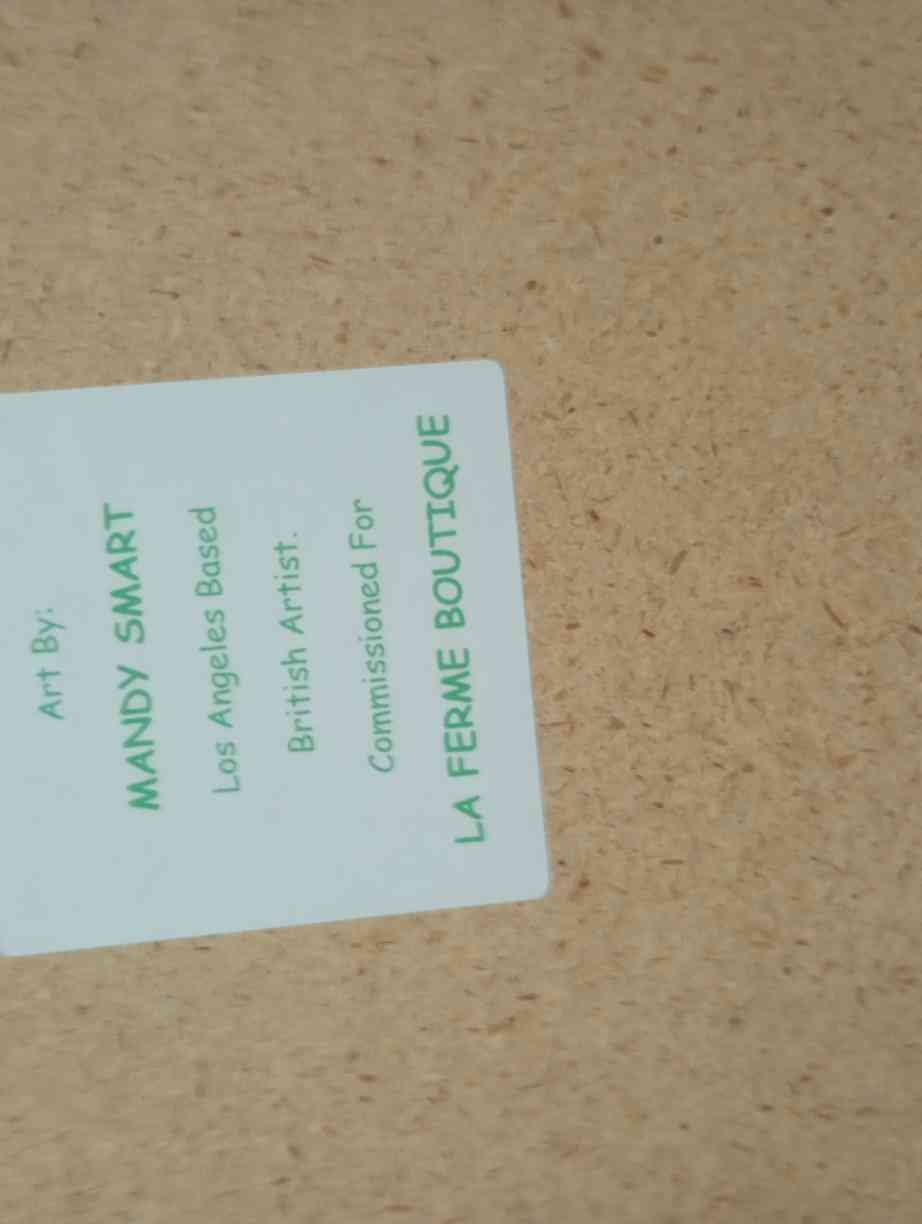 Art By:
MANDY SMART
Los Angeles Based
British Artist.
Commissioned For
LA FERME BOUTIQUE